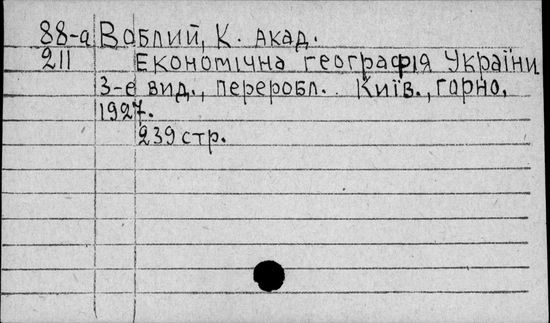 88-а Воблий, К. Акад.
211 Економічна географія України
3-е вид., переробл.. Київ., Горно,
1927.
239 стр.